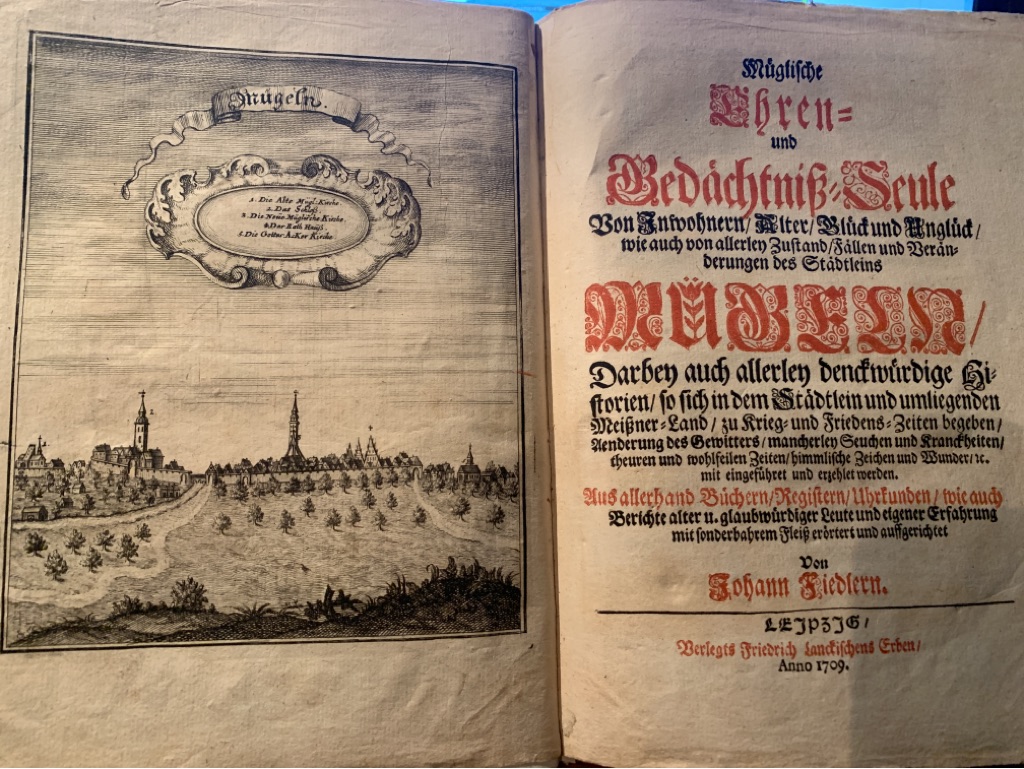 Mügeln.
1. Die Alte Mügl: Kirche
2. Das Schloß.
3. Die Neue Müglische Kirche.
4. Das Rath Hauß.
5. Die Gottes Acker Kirche.
Müglische
Ehren-
und
Gedächtniß-Seule
Von Inwohnern/ Alter/ Glück und Unglück/
wie auch von allerley Zustand/ Fällen und Verän-
derungen des Städtleins
MÜGELN/
Darbey auch allerley denckwürdige Hi-
storien/ so sich in dem Städtlein und umliegenden
Meißner-Land/ zu Krieg- und Friedens-Zeiten begeben/
Aenderung des Gewitters/ mancherley Seuchen und Kranckheiten/
theuren und wohlfeilen Zeiten/ himmlische Zeichen und Wunder/ ꝛc.
mit eingeführet und erzehlet werden.
Aus allerhand Büchern/ Registern/ Uhrkunden/ wie auch
Berichte alter u. glaubwürdiger Leute und eigener Erfahrung
mit sonderbahrem Fleiß erörtert und auffgerichtet
Von
Johann Fiedlern.
LEIPZIG/
Verlegts Friedrich Lanckischens Erben/
Anno 1709.